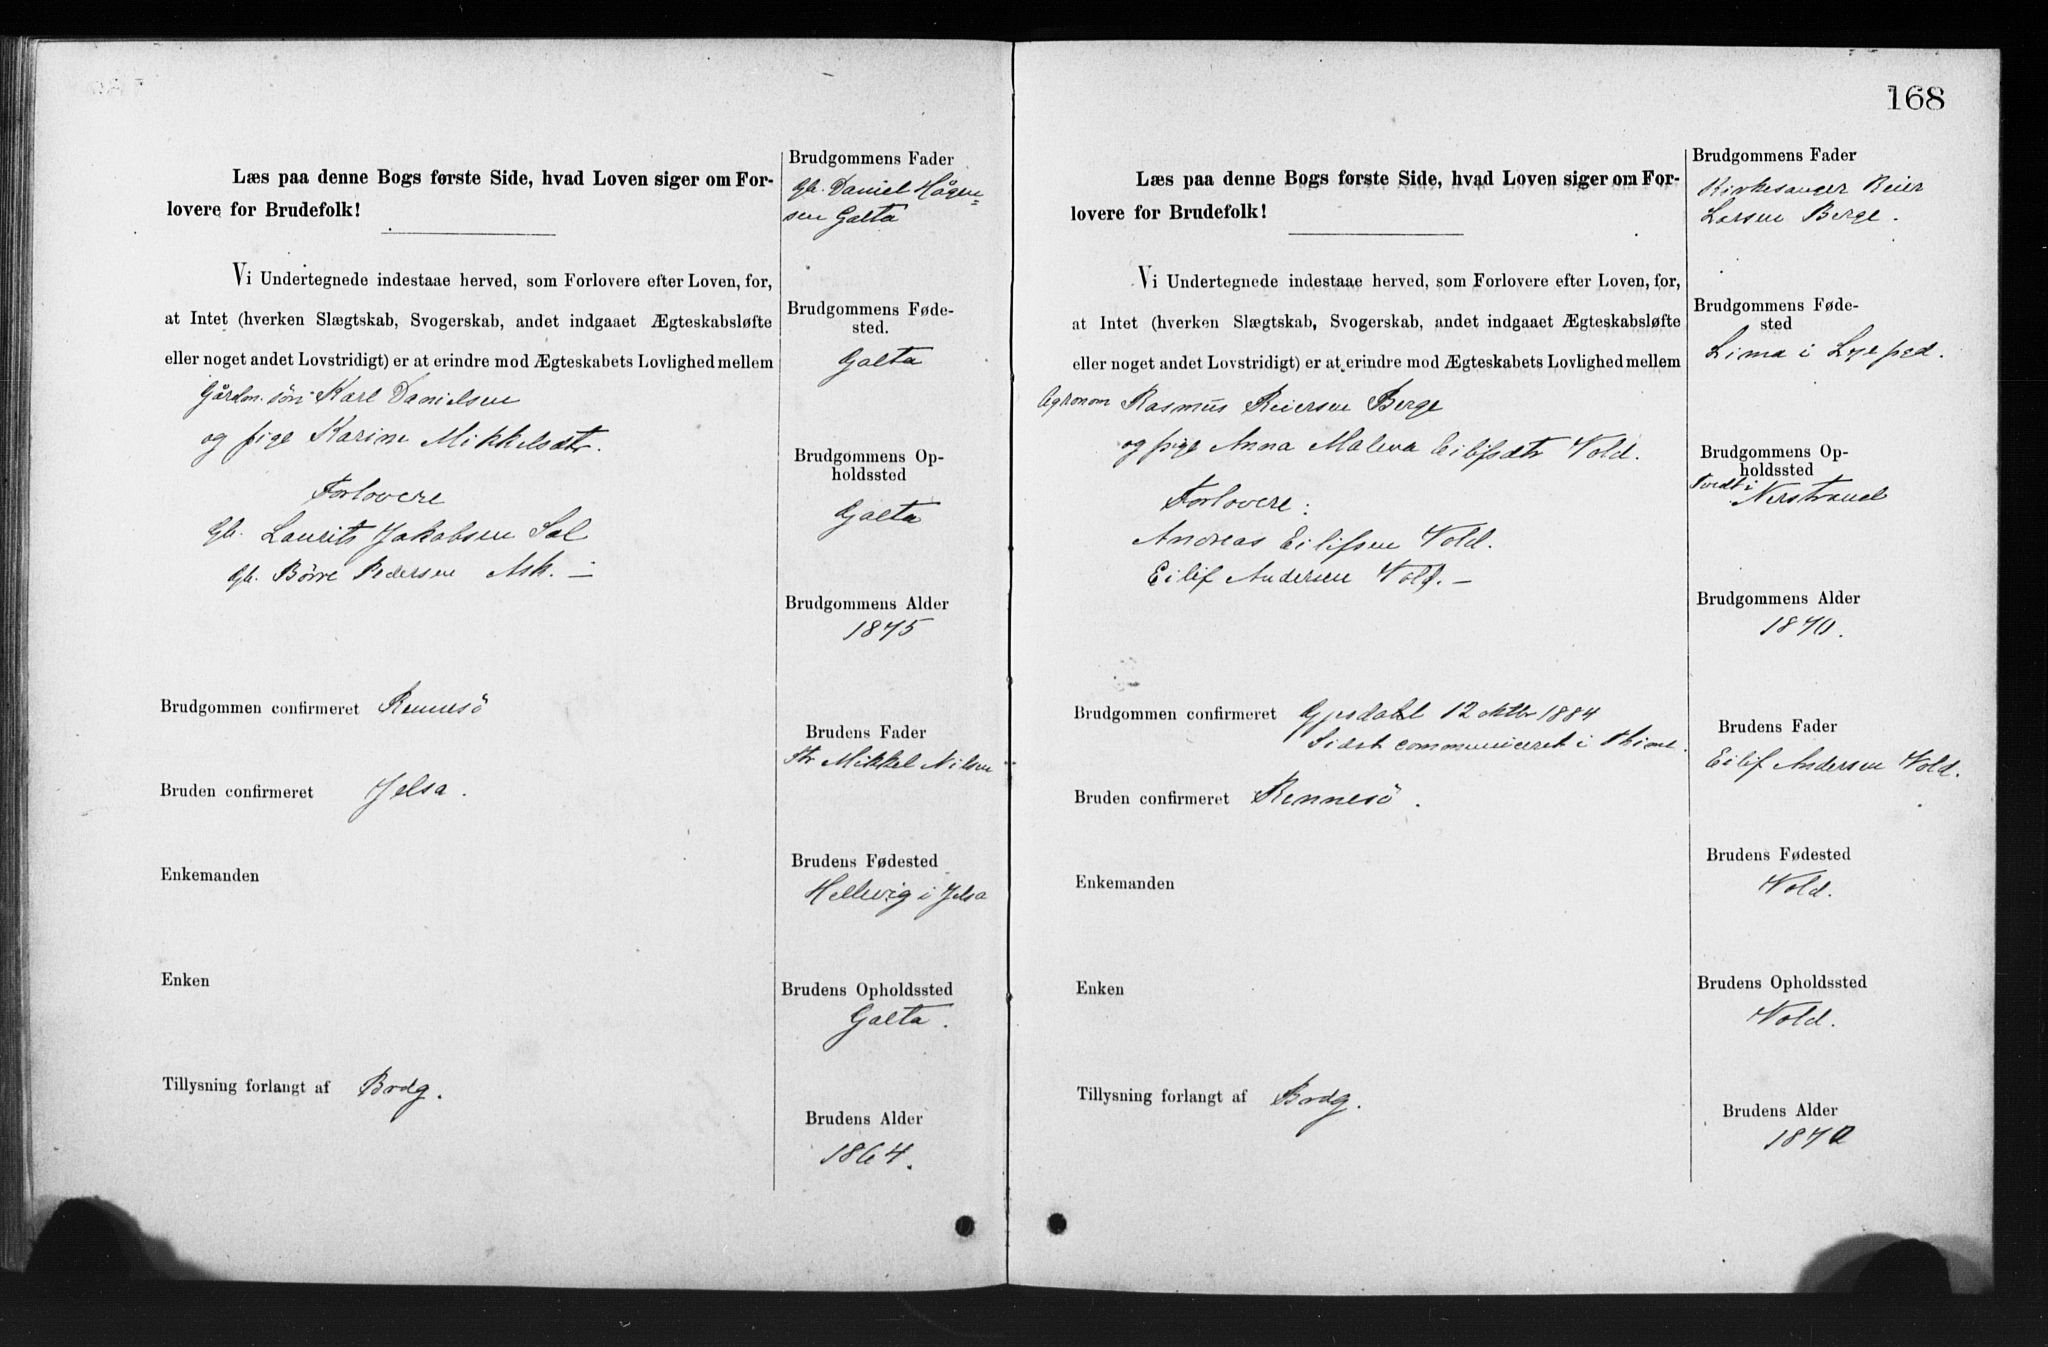 Læs paa denne Bogs første Side, hvad Loven siger om For-
lovere for Brudefolk!
Vi Undertegnede indestaae herved, som Forlovere efter Loven, for,
at Intet (hverken Slægtskab, Svogerskab, andet indgaaet Ægteskabsløfte
eller noget andet Lovstridigt) er at erindre mod Ægteskabets Lovlighed mellem
Gårdm. søn Karl Danielsen
og pige Karine Mikkelsdtr.
Forlovere
Gb. Laurits Jakobsen Sel
Gb. Børre Pedersen Ask. —
Brudgommen confirmeret Rennesö
Bruden confirmeret Jelsa.
Enkemanden
Enken
Tillysning forlangt af Brdg.
Brudgommens Fader
Gb. Daniel Hågen=
sen Galta
Brudgommens Føde-
sted.
Galta
Brudgommens Op-
holdssted
Galta
Brudgommens Alder
1875
Brudens Fader
Str Mikkel Nilsen
Brudens Fødested
Hellvig i Jelsa
Brudens Opholdssted
Galta.
Brudens Alder
1864.
168
Læs paa denne Bogs første Side, hvad Loven siger om For-
lovere for Brudefolk!
Vi Undertegnede indestaae herved, som Forlovere efter Loven, for,
at Intet (hverken Slægtskab, Svogerskab, andet indgaaet Ægteskabsløfte
eller noget andet Lovstridigt) er at erindre mod Ægteskabets Lovlighed mellem
Agronom Rasmus Reiersen Berge
og pige Anna Maleva Eilifsdtr Vold.
Forlovere:
Andreas Eilifsen Vold.
Eilif Andersen Vold. —
Brudgommen confirmeret Gjesdahl 12 oktbr 1884
Sidst communiceret i Thime.
Bruden confirmeret Rennesö.
Enkemanden
Enken
Tillysning forlangt af Brdg.
Brudgommens Fader
Kirkesanger Reier
Larsen Berge.
Brudgommens Føde-
sted
Lima i Lye pgd.
Brudgommens Op-
holdssted
Tvedt i Nerstrand
Brudgommens Alder
1870.
Brudens Fader
Eilif Andersen Vold.
Brudens Fødested
Vold.
Brudens Opholdssted
Vold.
Brudens Alder
1870